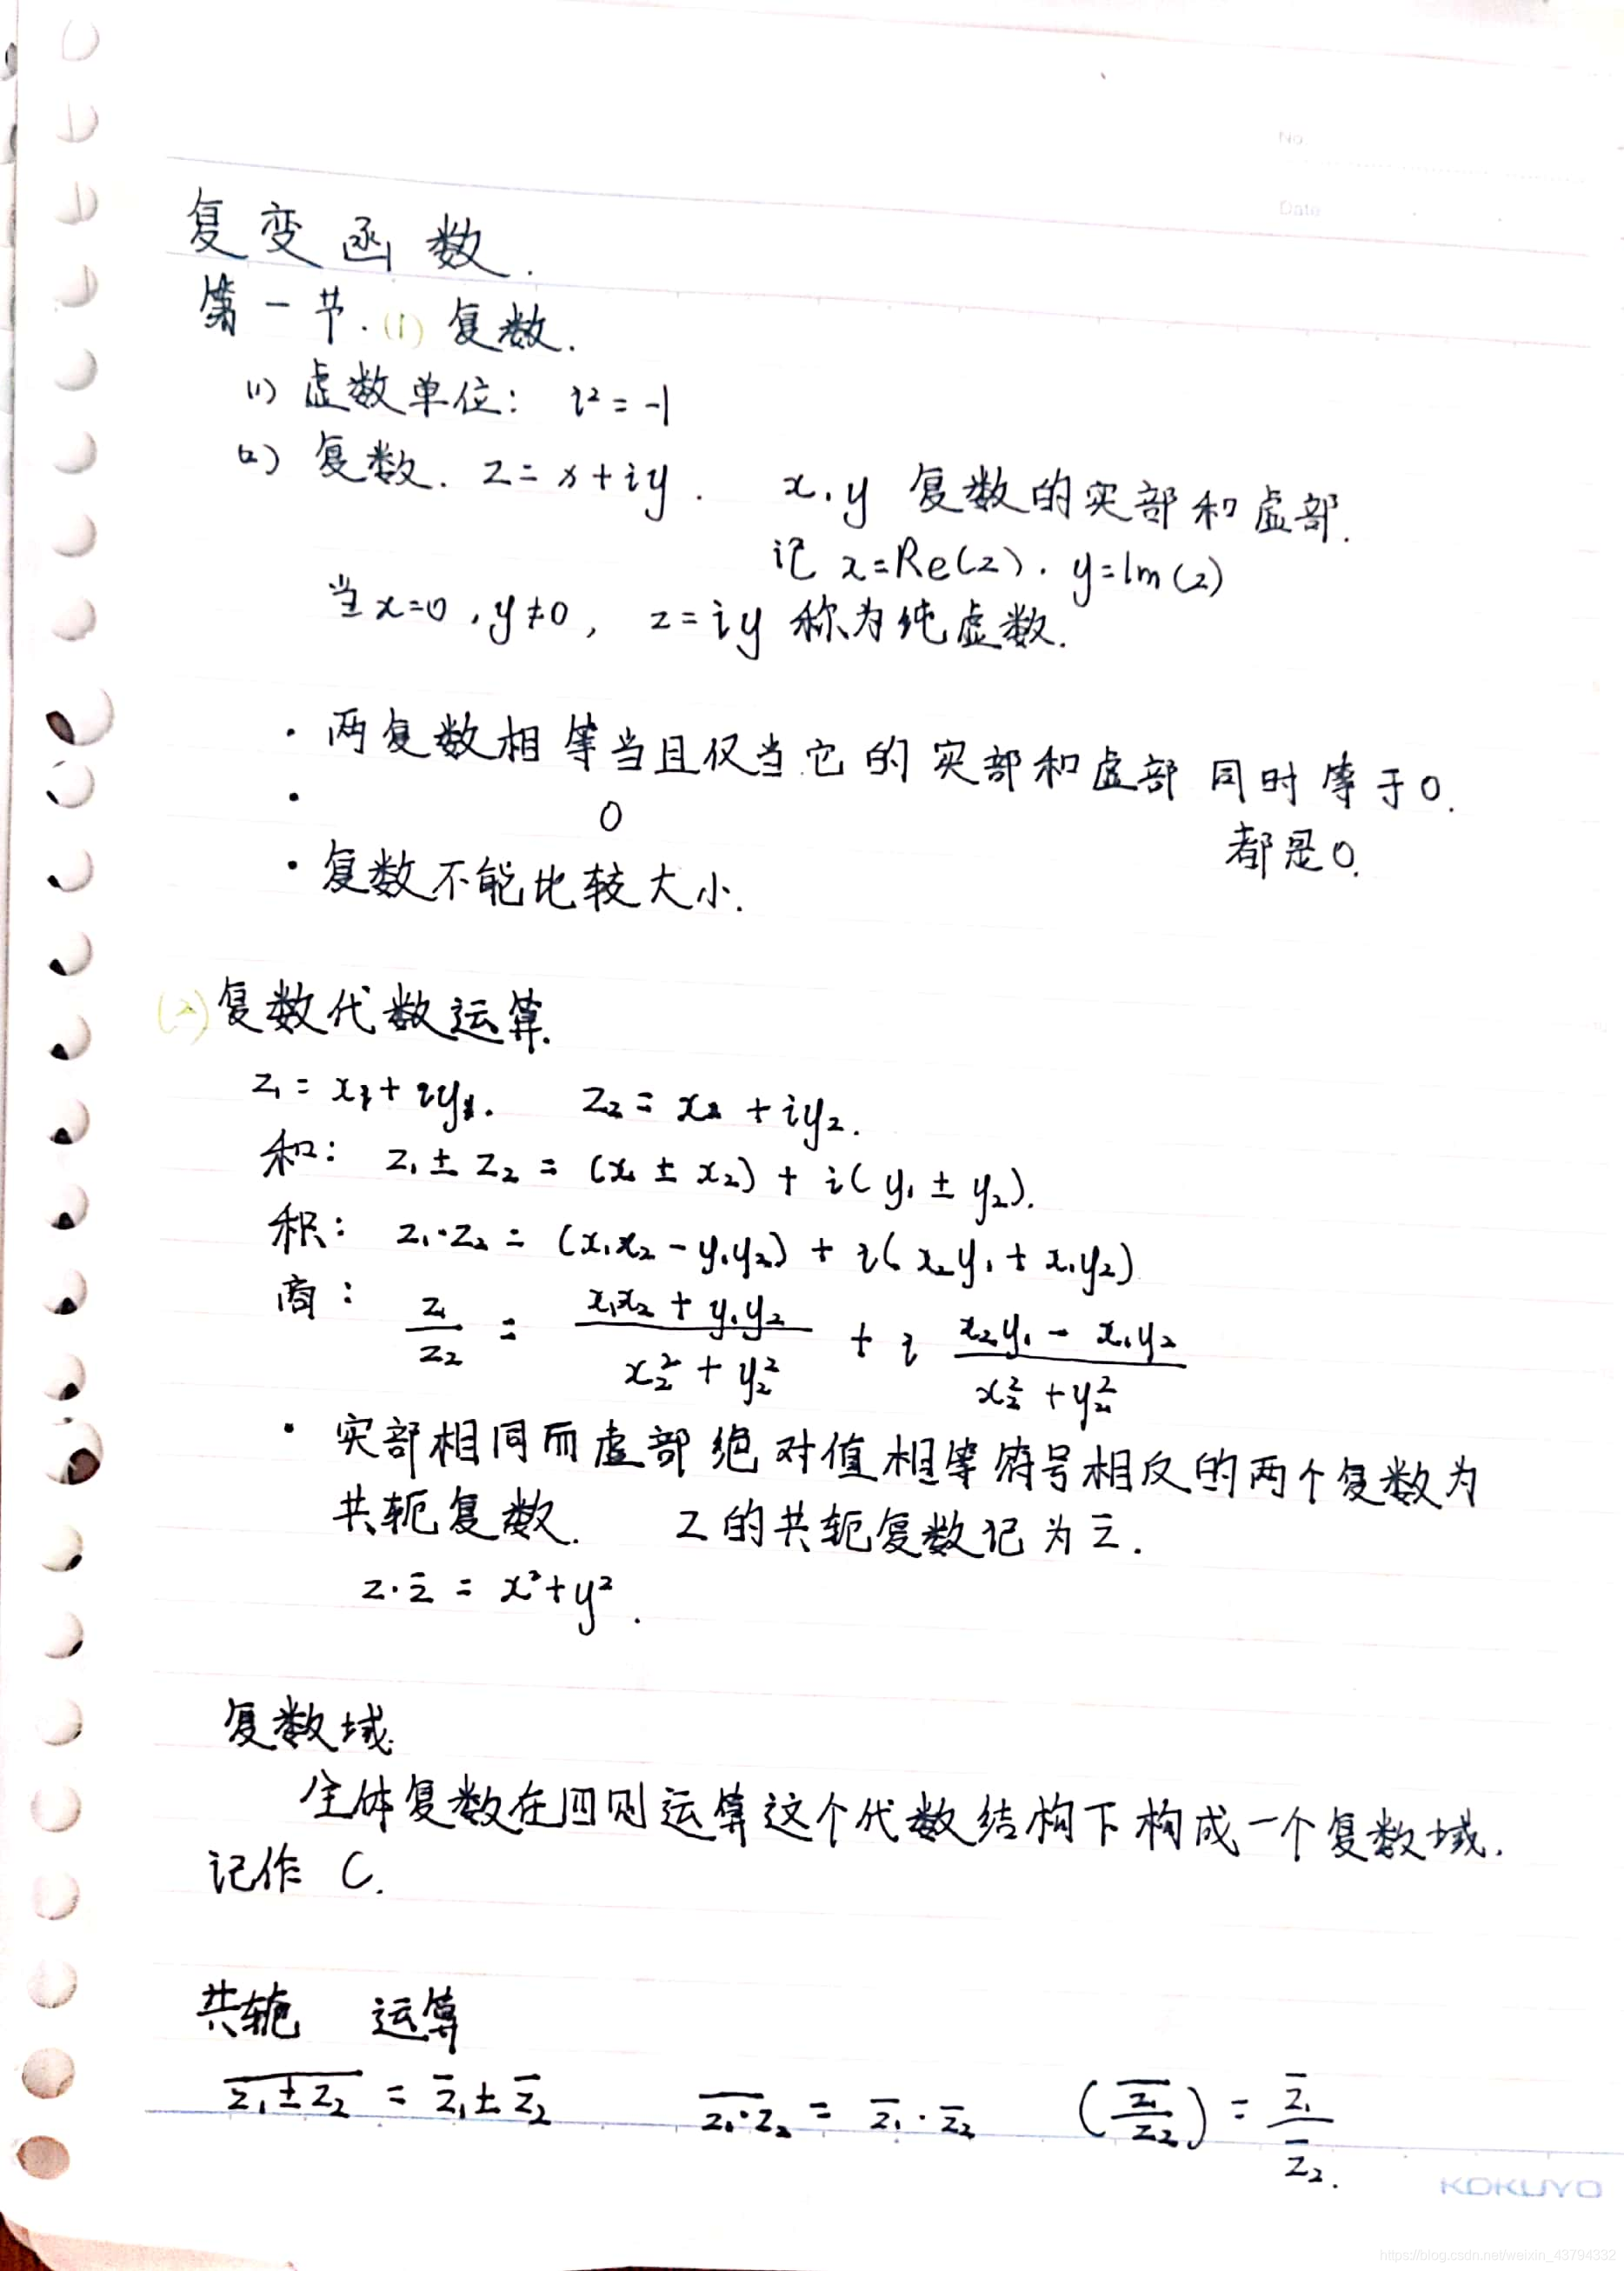 No
Date
复变函数.
第一节.(1) 复数.
(1) 虚数单位: i²=-1
(2) 复数. z=x+iy. x,y 复数的实部和虚部.
记 x=Re(z). y=Im(z)
当x=0,y≠0, z=iy 称为纯虚数.
· 两复数相等当且仅当它的实部和虚部同时等于0.
· 0 都是0.
· 复数不能比较大小.
(2) 复数代数运算.
z₁=x₁+iy₁. z₂=x₂+iy₂.
和: z₁±z₂=(x₁±x₂)+i(y₁±y₂).
积: z₁·z₂=(x₁x₂-y₁y₂)+i(x₂y₁+x₁y₂)
商: z₁/z₂ = (x₁x₂+y₁y₂)/(x₂²+y₂²) + i (x₂y₁-x₁y₂)/(x₂²+y₂²)
· 实部相同而虚部绝对值相等符号相反的两个复数为
共轭复数. z的共轭复数记为z̄.
z·z̄ = x²+y².
复数域.
全体复数在四则运算这个代数结构下构成一个复数域.
记作 C.
共轭 运算
\overline{z₁±z₂} = z̄₁±z̄₂ \overline{z₁·z₂} = z̄₁·z̄₂ (\overline{z₁/z₂}) = z̄₁/z̄₂.
KOKUYO
https://blog.csdn.net/weixin_43794332